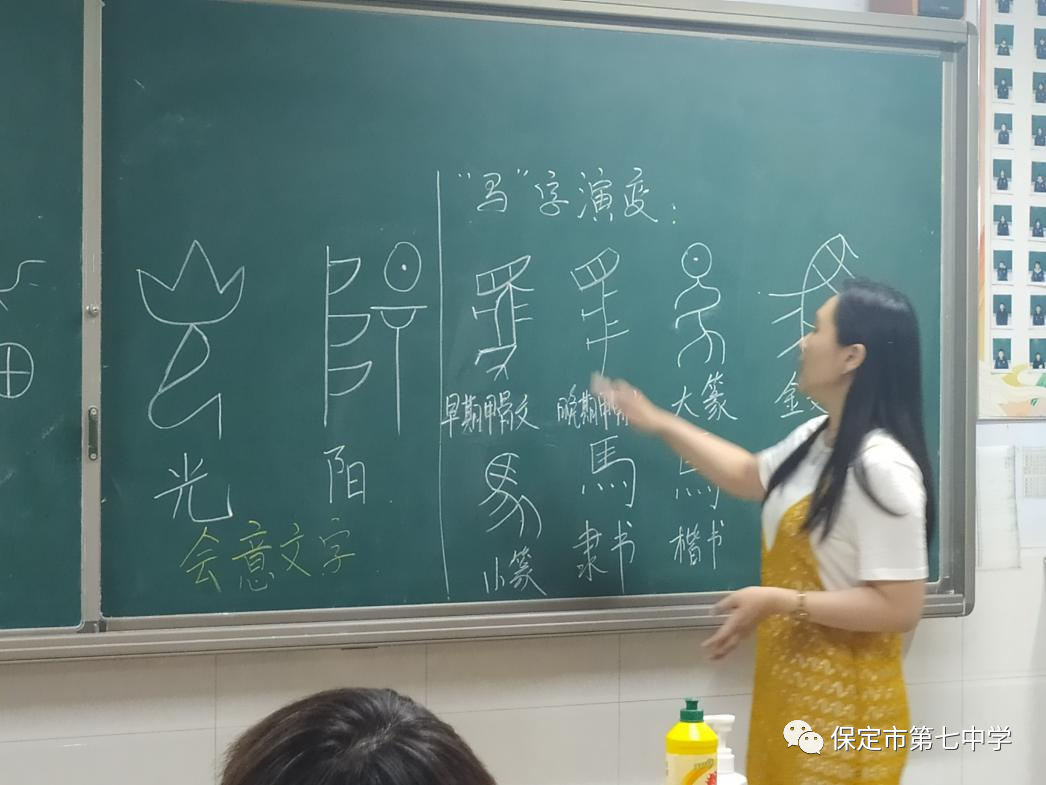 "马"字演变:
早期甲骨文 晚期甲骨 大篆
馬 馬
小篆 隶书 楷书
光 阳
会意文字
保定市第七中学